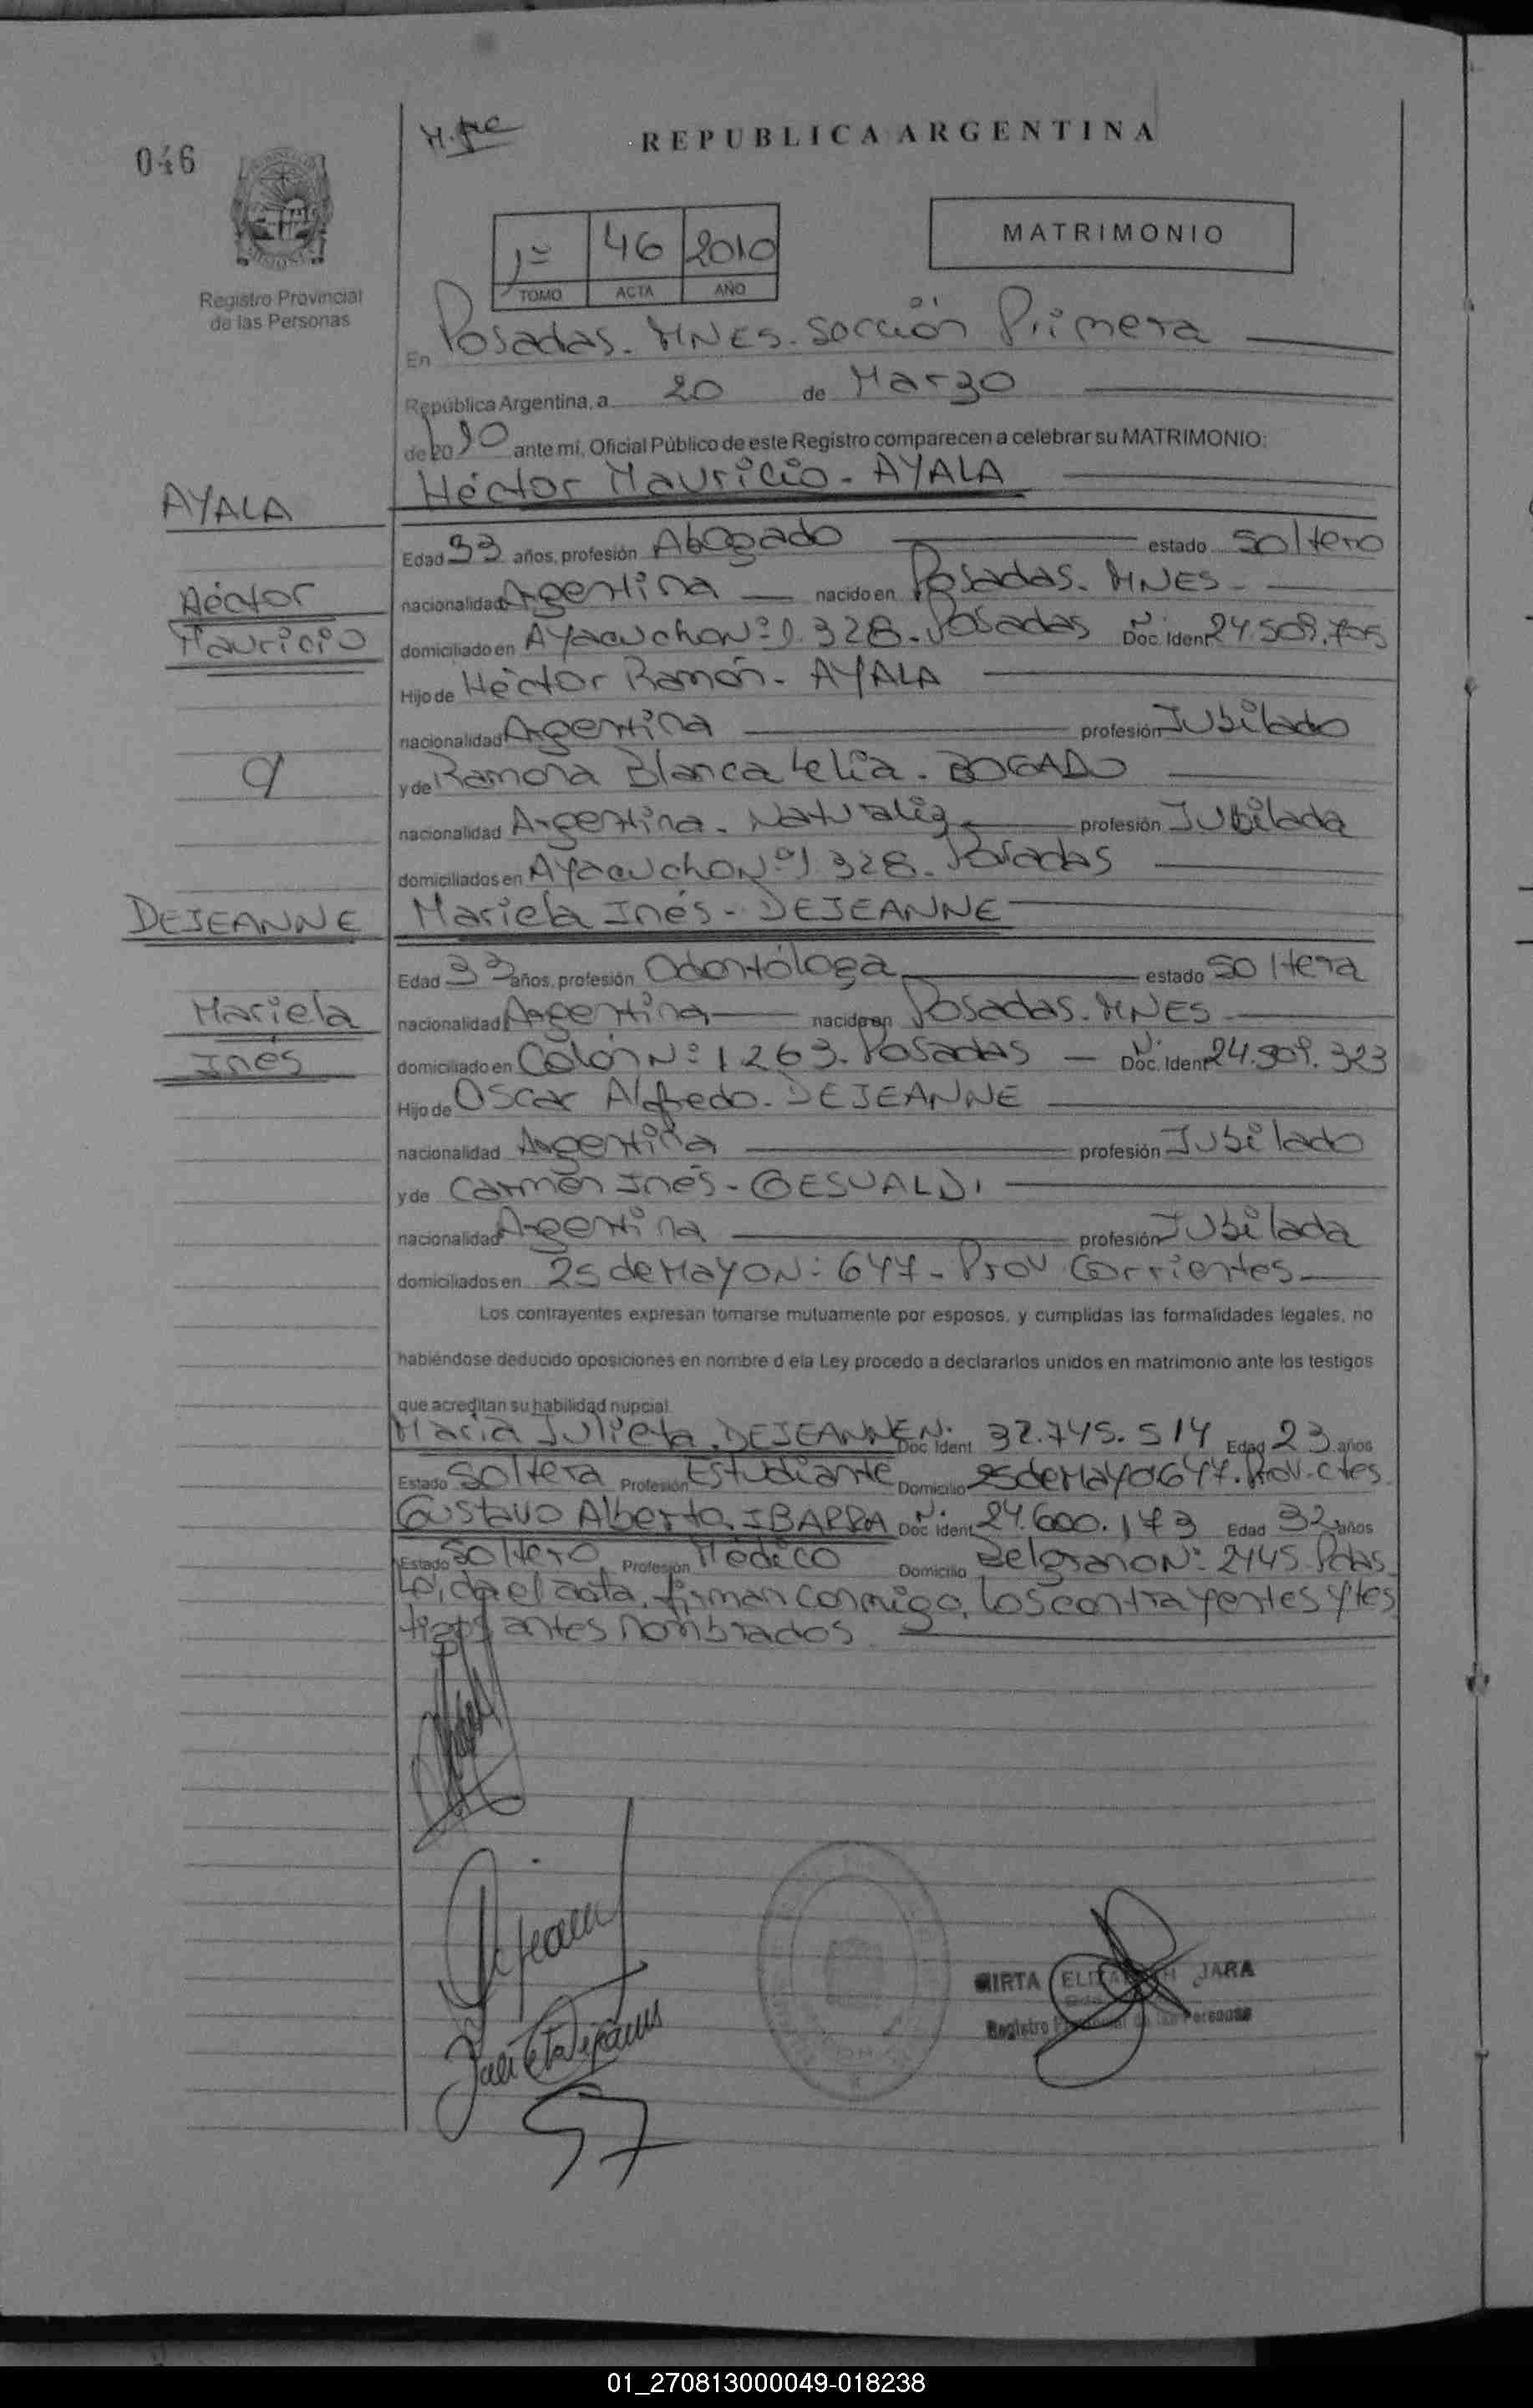 046
REPUBLICA ARGENTINA
Registro Provincial
de las Personas
1º 46 2010
TOMO ACTA AÑO
MATRIMONIO
En Posadas. MNES. Sección Primera
República Argentina, a 20 de Marzo
de 2010 ante mí, Oficial Público de este Registro comparecen a celebrar su MATRIMONIO:
AYALA
Héctor Mauricio - AYALA
Edad 33 años, profesión Abogado estado soltero
Héctor
nacionalidad Argentina nacido en Posadas. MNES -
Mauricio
domiciliado en Ayacucho Nº 1.328. Posadas Nº Doc. Ident 24.509.705
Hijo de Héctor Ramón - AYALA
nacionalidad Argentina profesión Jubilado
y de Ramona Blanca Lelia. BOGADO
nacionalidad Argentina. Naturaliz profesión Jubilada
domiciliados en Ayacucho Nº 1.328. Posadas
DEJEANNE
Mariela Inés - DEJEANNE
Edad 33 años, profesión Odontóloga estado soltera
Mariela
nacionalidad Argentina nacido en Posadas. MNES
Inés
domiciliado en Colón Nº 1.263. Posadas - Nº Doc. Ident 24.909.323
Hijo de Oscar Alfredo. DEJEANNE
nacionalidad Argentina profesión Jubilado
y de Carmen Inés - GESUALDI
nacionalidad Argentina profesión Jubilada
domiciliados en 25 de Mayo Nº 647 - Prov Corrientes
Los contrayentes expresan tomarse mutuamente por esposos, y cumplidas las formalidades legales, no
habiéndose deducido oposiciones en nombre d ela Ley procedo a declararlos unidos en matrimonio ante los testigos
que acreditan su habilidad nupcial
María Julieta. DEJEANNE Nº Doc Ident 32.745.514 Edad 23 años
Estado Soltera Profesión Estudiante Domicilio 25 de Mayo 647. Prov. Ctes
Gustavo Alberto IBARRA Nº Doc Ident 24.600.173 Edad 32 años
Estado Soltero Profesión Médico Domicilio Belgrano Nº 2445 Pdas.
Leída el acta, firman conmigo, los contrayentes y tes
tigos antes nombrados
MIRTA ELIZABETH JARA
Registro Provincial de las Personas
01_270813000049-018238